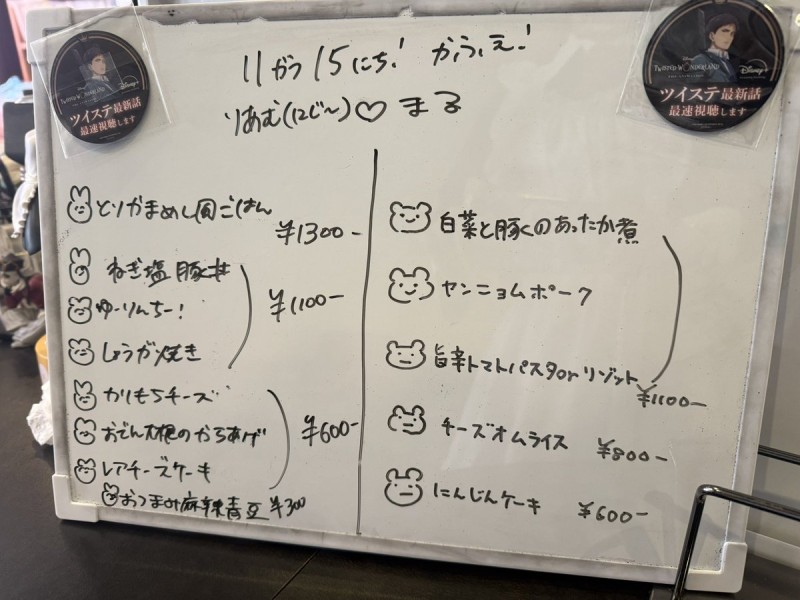 11がつ15にち! かふぇ!
りあむ(12じ〜)♡まる
とりかまめし風ごはん
¥1300-
ねぎ塩豚丼
ゆーりんちー!
しょうが焼き
¥1100-
かりもちチーズ
おでん大根のからあげ
レアチーズケーキ
¥600-
おつまみ麻辣青豆 ¥300
白菜と豚くのあったか煮
ヤンニョムポーク
旨辛トマトパスタorリゾット
¥1100-
チーズオムライス ¥800-
にんじんケーキ ¥600-
TWISTED-WONDERLAND
Disney+
ツイステ最新話
最速視聴します
Disney+
TWISTED-WONDERLAND
ツイステ最新話
最速視聴します